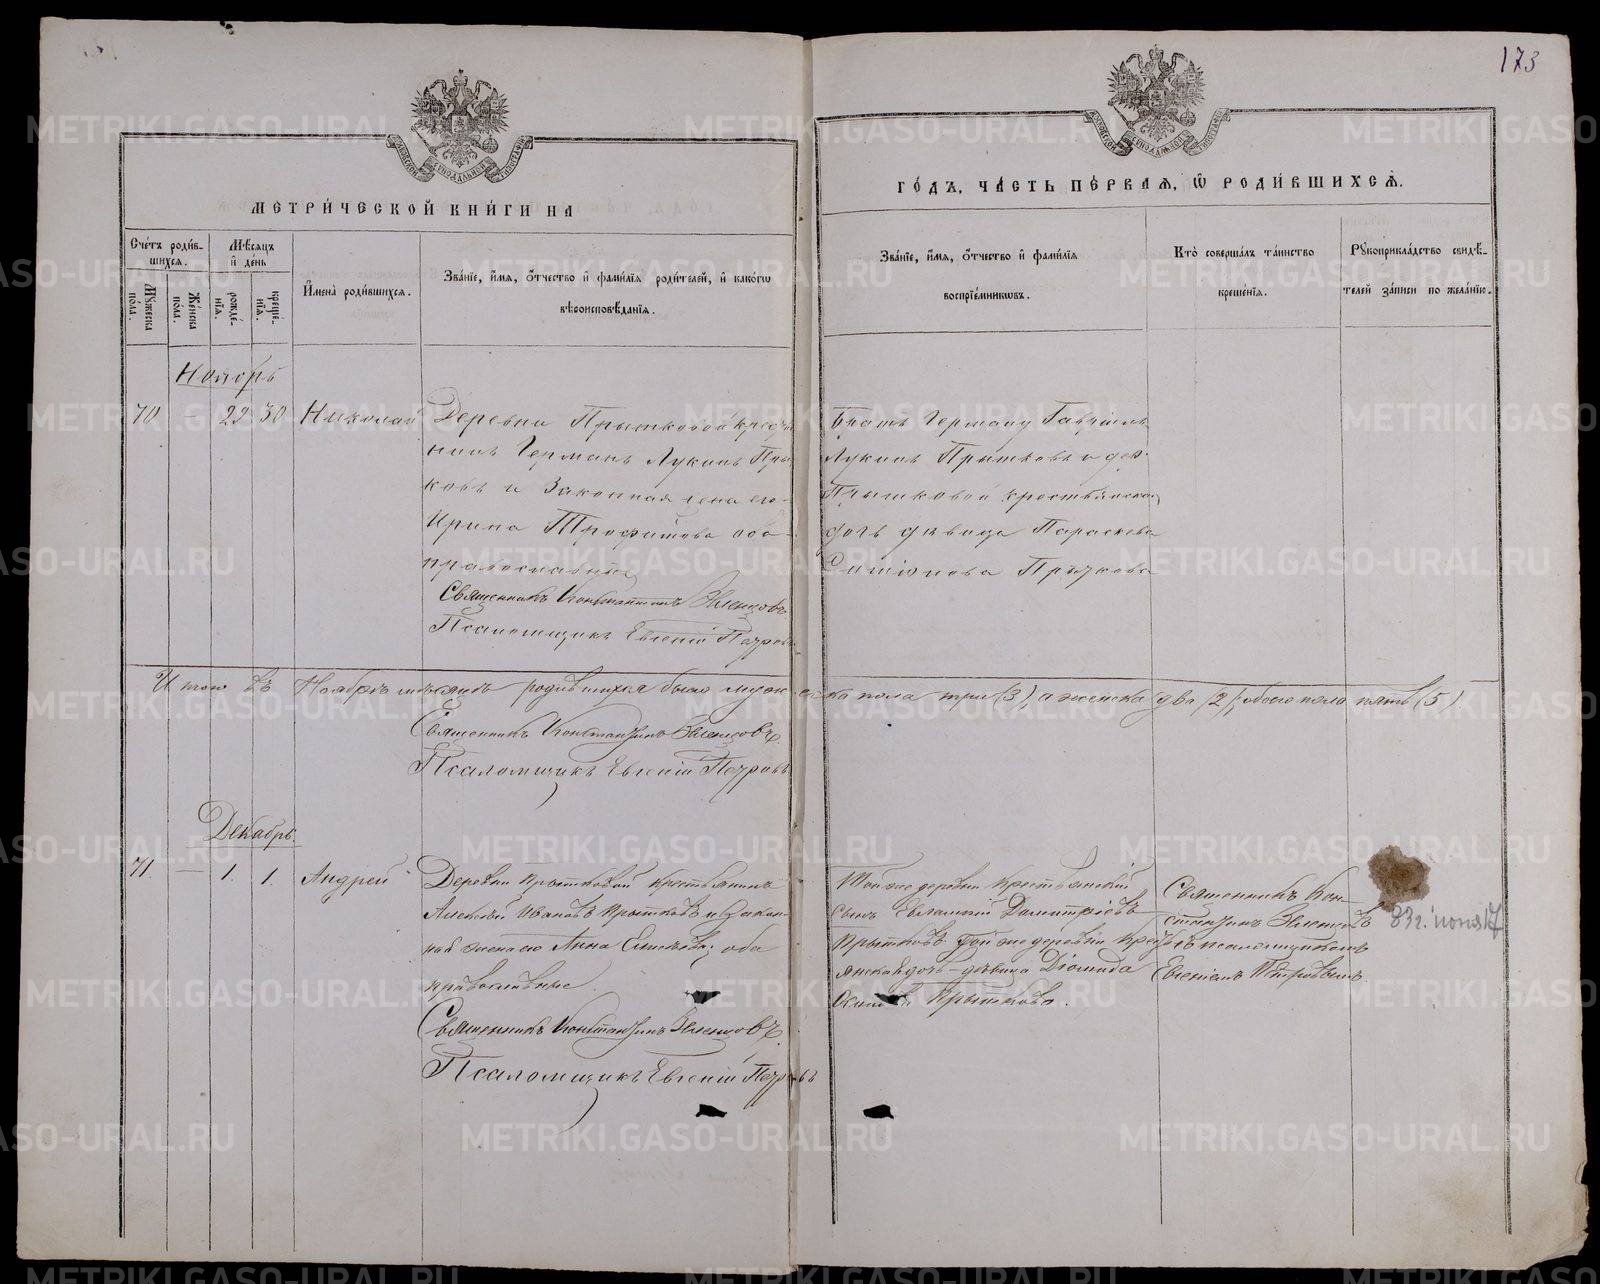 173
МЕТРИ́ЧЕСКОЙ КНИ́ГИ НА
ГО́ДЪ, ЧА́СТЬ ПЕ́РВАЯ, Ѡ РОДИ́ВШИХСѦ.
Сче́тъ роди́в-
шихся.
Мѣ́сяцъ
и́ де́нь
Му́жеска
по́ла.
Же́нска
по́ла.
рожде́-
нїя.
креще́-
нїя.
И҆мена̀ роди́вшихся.
Зва́нїе, и҆́мя, ѻ҆́тчество и҆ фами́лїя роди́телей, и҆ како́гѡ
вѣроисповѣ́данїя.
Зва́нїе, и҆́мя, ѻ҆́тчество и҆ фами́лїя
воспрїе́мникѡвъ.
Кто̀ соверша́лъ та́инство
креще́нїя.
Рукоприкла́дство свидѣ́-
телей за́писи по жела́нїю.
Ноябрь
70 — 22 30 Николай
Деревни Прытковой крестья
нинъ Германъ Лукинъ Пры
ковъ и законная жена его
Ирина Трофимова оба
православные
Священникъ Константинъ
Псаломщикъ Евгений Петровъ
Братъ Герману Гавріилъ
Лукинъ Прытковъ и дер.
Прытковой крестьянская
дочь девица Параскева
Симіонова
Итого въ Ноябрѣ мѣсяцѣ родившихся было мужеска пола три (3), а женска два (2), обоего пола пять (5)
Священникъ Константинъ
Псаломщикъ Евгеній Петровъ
Декабрь
71 — 1. 1. Андрей
Деревни Прытковой крестьянинъ
Алексѣй Ивановъ Прытковъ и закон-
ная жена его Анна Елисѣева; оба
православные.
Священникъ Константинъ
Псаломщикъ Евгеній Петровъ
Той же деревни крестьянскій
сынъ Евлампій Димитріевъ
Прытковъ той же деревни крес
янская дочь-дѣвица Діомида
Прыткова.
Священникъ Кон-
стантинъ
съ псаломщикомъ
Евгеніемъ Петровымъ.
83 г. іюня 17
METRIKI.GASO-URAL.RU